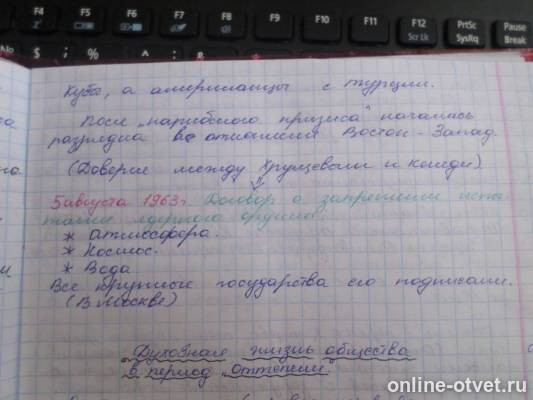 F4 F5 F6 F7 F8 F9 F10 F11 F12 PrtSc Pause
Scr Lk SysRq Break
Кубы, а американцы с турции.
После "карибского кризиса" началась
разрядка в отношения Восток - Запад.
(Доверие между Хрущевым и кенеди).
5 августа 1963г. Договор о запрещении испы-
тание ядерного оружия
* Атмосфера.
* Космос.
* Вода
Все крупные государства его подписали.
(В Москве)
Духовная жизнь общества
в период "оттепели".
online-otvet.ru